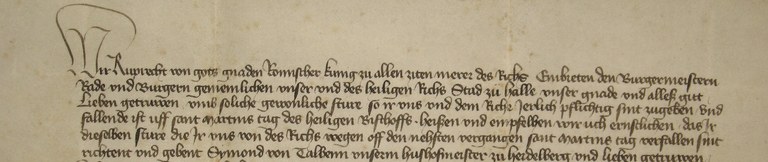 Wir Ruprecht von gots gnaden Romischer kunig zu allen ziten merer des Richs Embieten den Burgermeistern
Rade und Burgern gemeinlichen unser und des heiligen Richs Stad zu Halle unser gnade und alles gut
Lieben getruwen umb soliche gewonliche sture so ir uns und dem Riche Jerlich pflichtig sint zugeben und
fallende ist uff sant Martins tag des heiligen Bischoffs heissen und empfelhen wir uch ernstlichen das Ir
dieselben sture die Ir uns von des Richs wegen off den nehsten vergangen sant Martins tag verfallen sint
richtent und gebent Symond von Talbenn unserm hushofmeister zu heidelberg und lieben getruwen